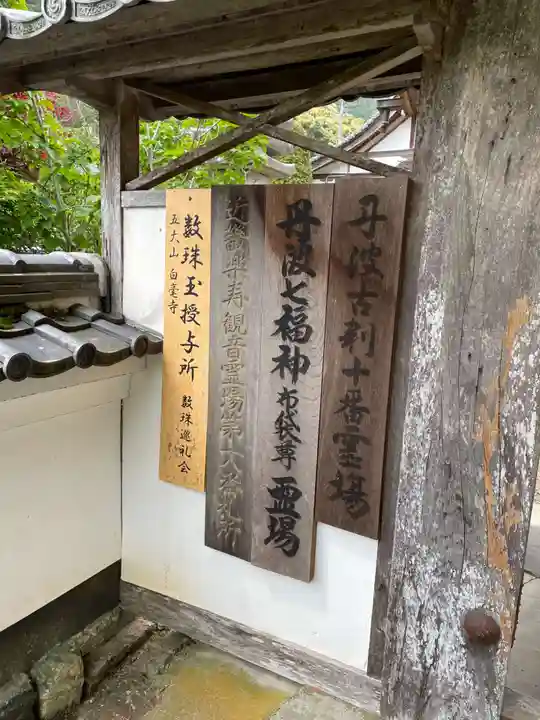 丹波古刹十番霊場
丹波七福神 布袋尊 霊場
新西国楽寿観音霊場第六番札所
数珠玉授与所 数珠巡礼会
五大山 白毫寺